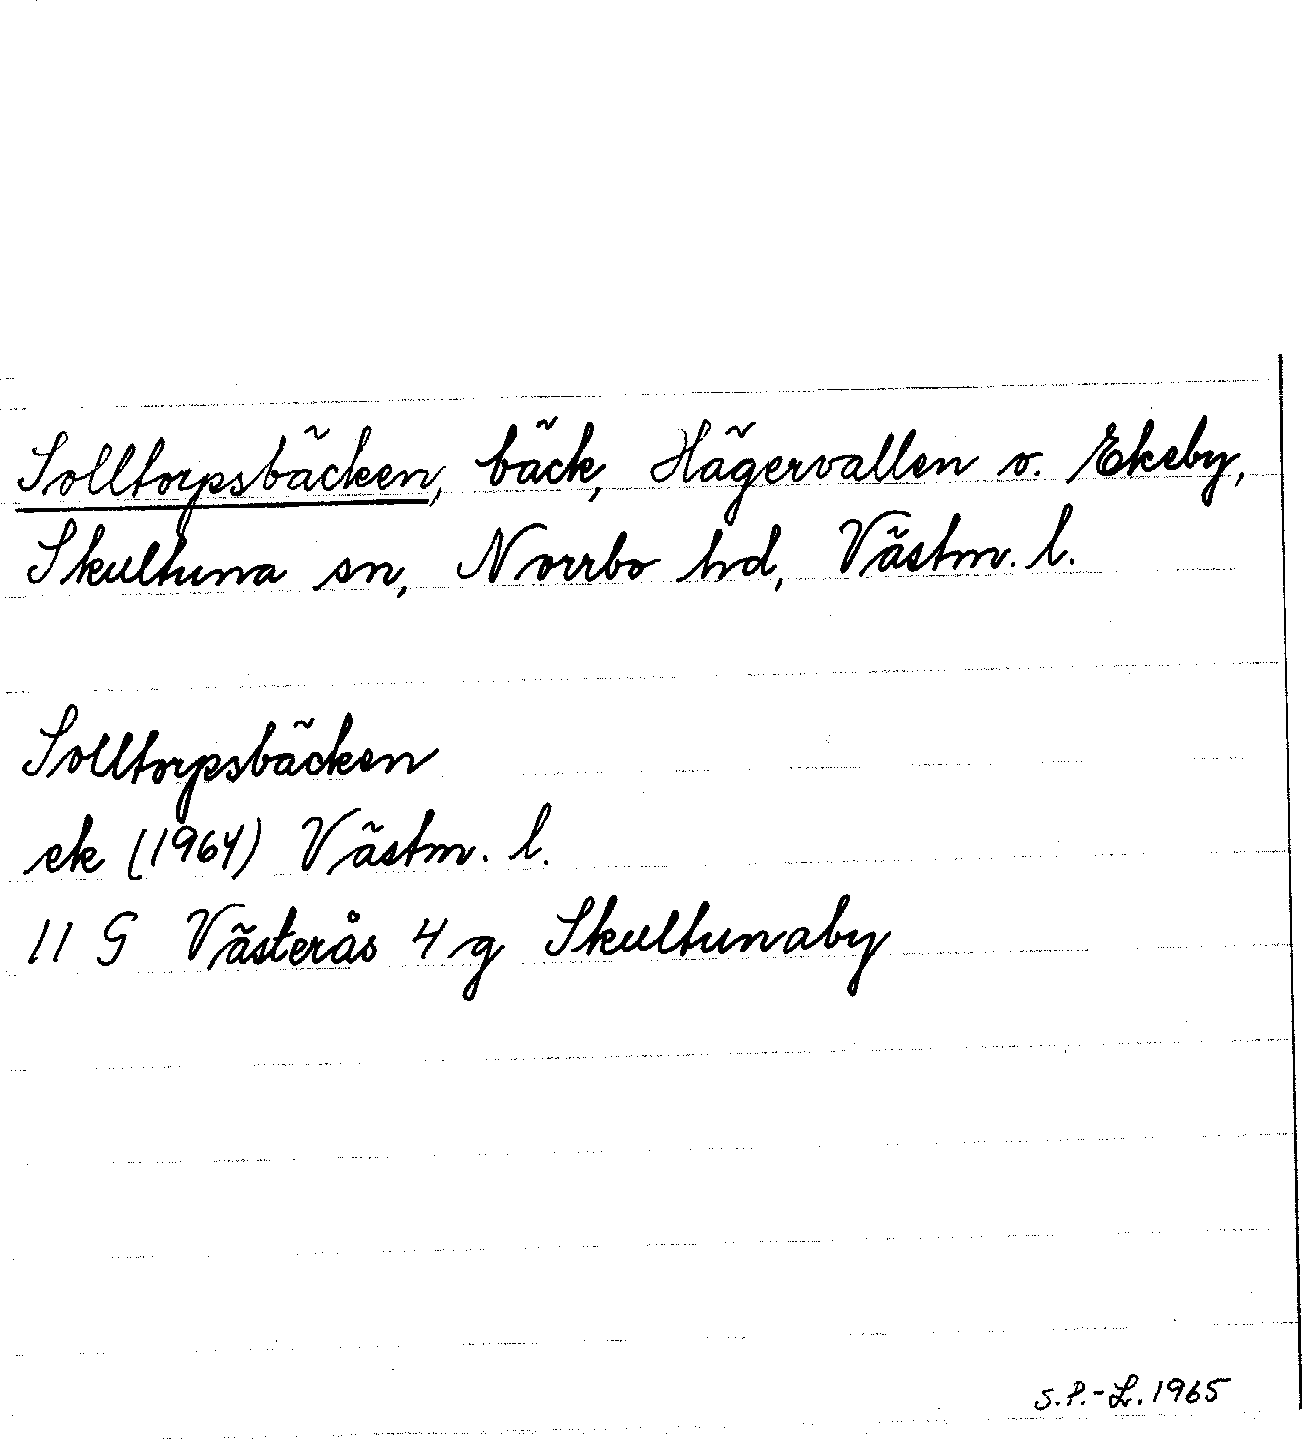 Solltorpsbäcken, bäck, Hägervallen o. Ekeby,
Skultuna sn, Norrbo hd, Västm. l.
Solltorpsbäcken
ek (1964) Västm. l.
11 G Västerås 4 g Skultunaby
S.P.-L. 1965